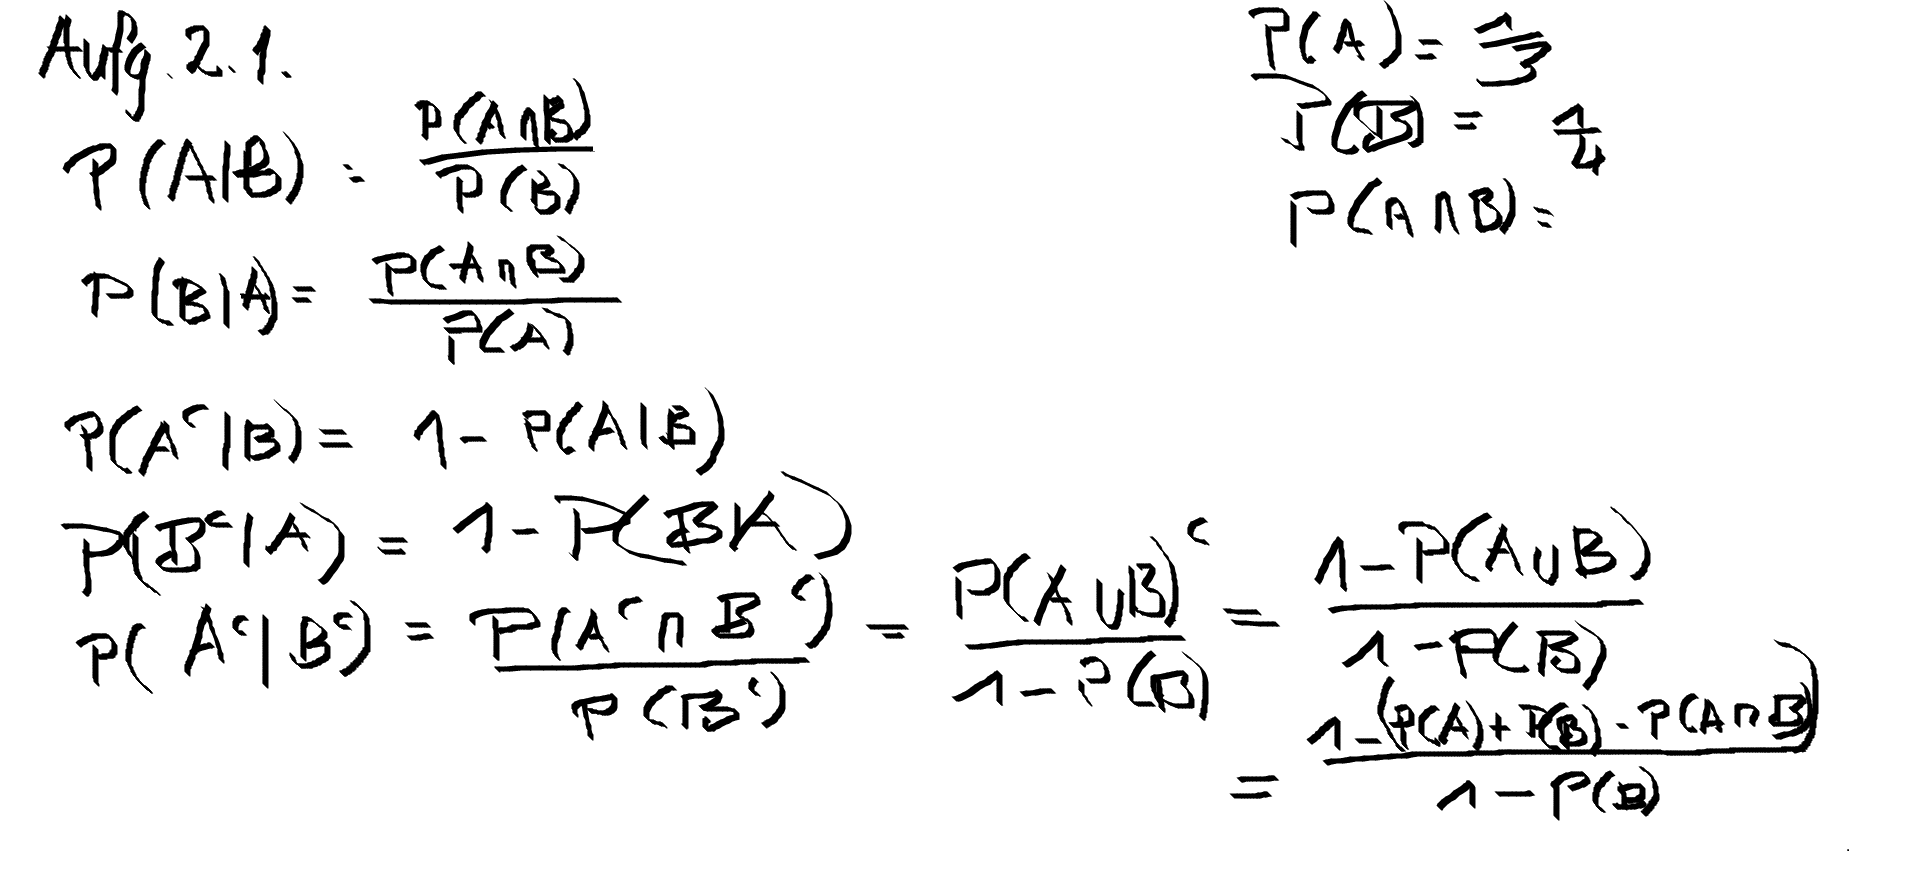 Aufg. 2.1.
P(A) = 1/3
P(B) = 1/4
P(A∩B) =
P(A|B) = P(A∩B) / P(B)
P(B|A) = P(A∩B) / P(A)
P(Aᶜ|B) = 1 - P(A|B)
P(Bᶜ|A) = 1 - P(B|A)
P(Aᶜ|Bᶜ) = P(Aᶜ∩Bᶜ) / P(Bᶜ) = P(A∪B)ᶜ / 1 - P(B) = 1 - P(A∪B) / 1 - P(B)
= 1 - (P(A) + P(B) - P(A∩B)) / 1 - P(B)